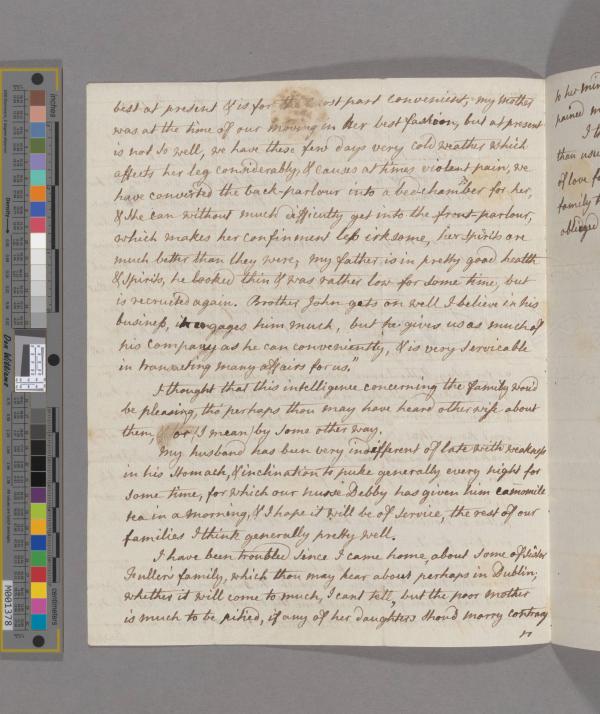 best at present & is for the most part convenient, my mother
was at the time of our moving in her best fashion, but at present
is not so well, we have these few days very cold weather which
affects her leg considerably, & causes at times violent pain, we
have converted the back-parlour into a bed-chamber for her,
& she can without much difficulty get into the front-parlour,
which makes her confinment less irksome, her spirits are
much better than they were; my father is in pretty good health
& spirits, he looked thin & was rather low for some time, but
is recruited again. Brother John gets on well I believe in his
business, it engages him much, but he gives us as much of
his company as he can conveniently, & is very servicable
in transacting many affairs for us."
I thought that this intelligence concerning the family woud
be pleasing, tho perhaps thou may have heard otherwise about
them, or (I mean) by some other way.
My husband has been very indifferent of late with weakness
in his stomach, & inclination to puke generally every night for
some time, for which our nurse Debby has given him camomile
tea in a morning, & I hope it will be of service, the rest of our
families I think generally pretty well.
I have been troubled since I came home, about some of sister
Fuller's family, which thou may hear about perhaps in Dublin;
whether it will come to much, I cant tell, but the poor mother
is much to be pitied, if any of her daughters shoud marry contrary
to her
pained
I th
than usu
of love f
family t
obliged
inches
centimeters
Density
Don Williams
M001378